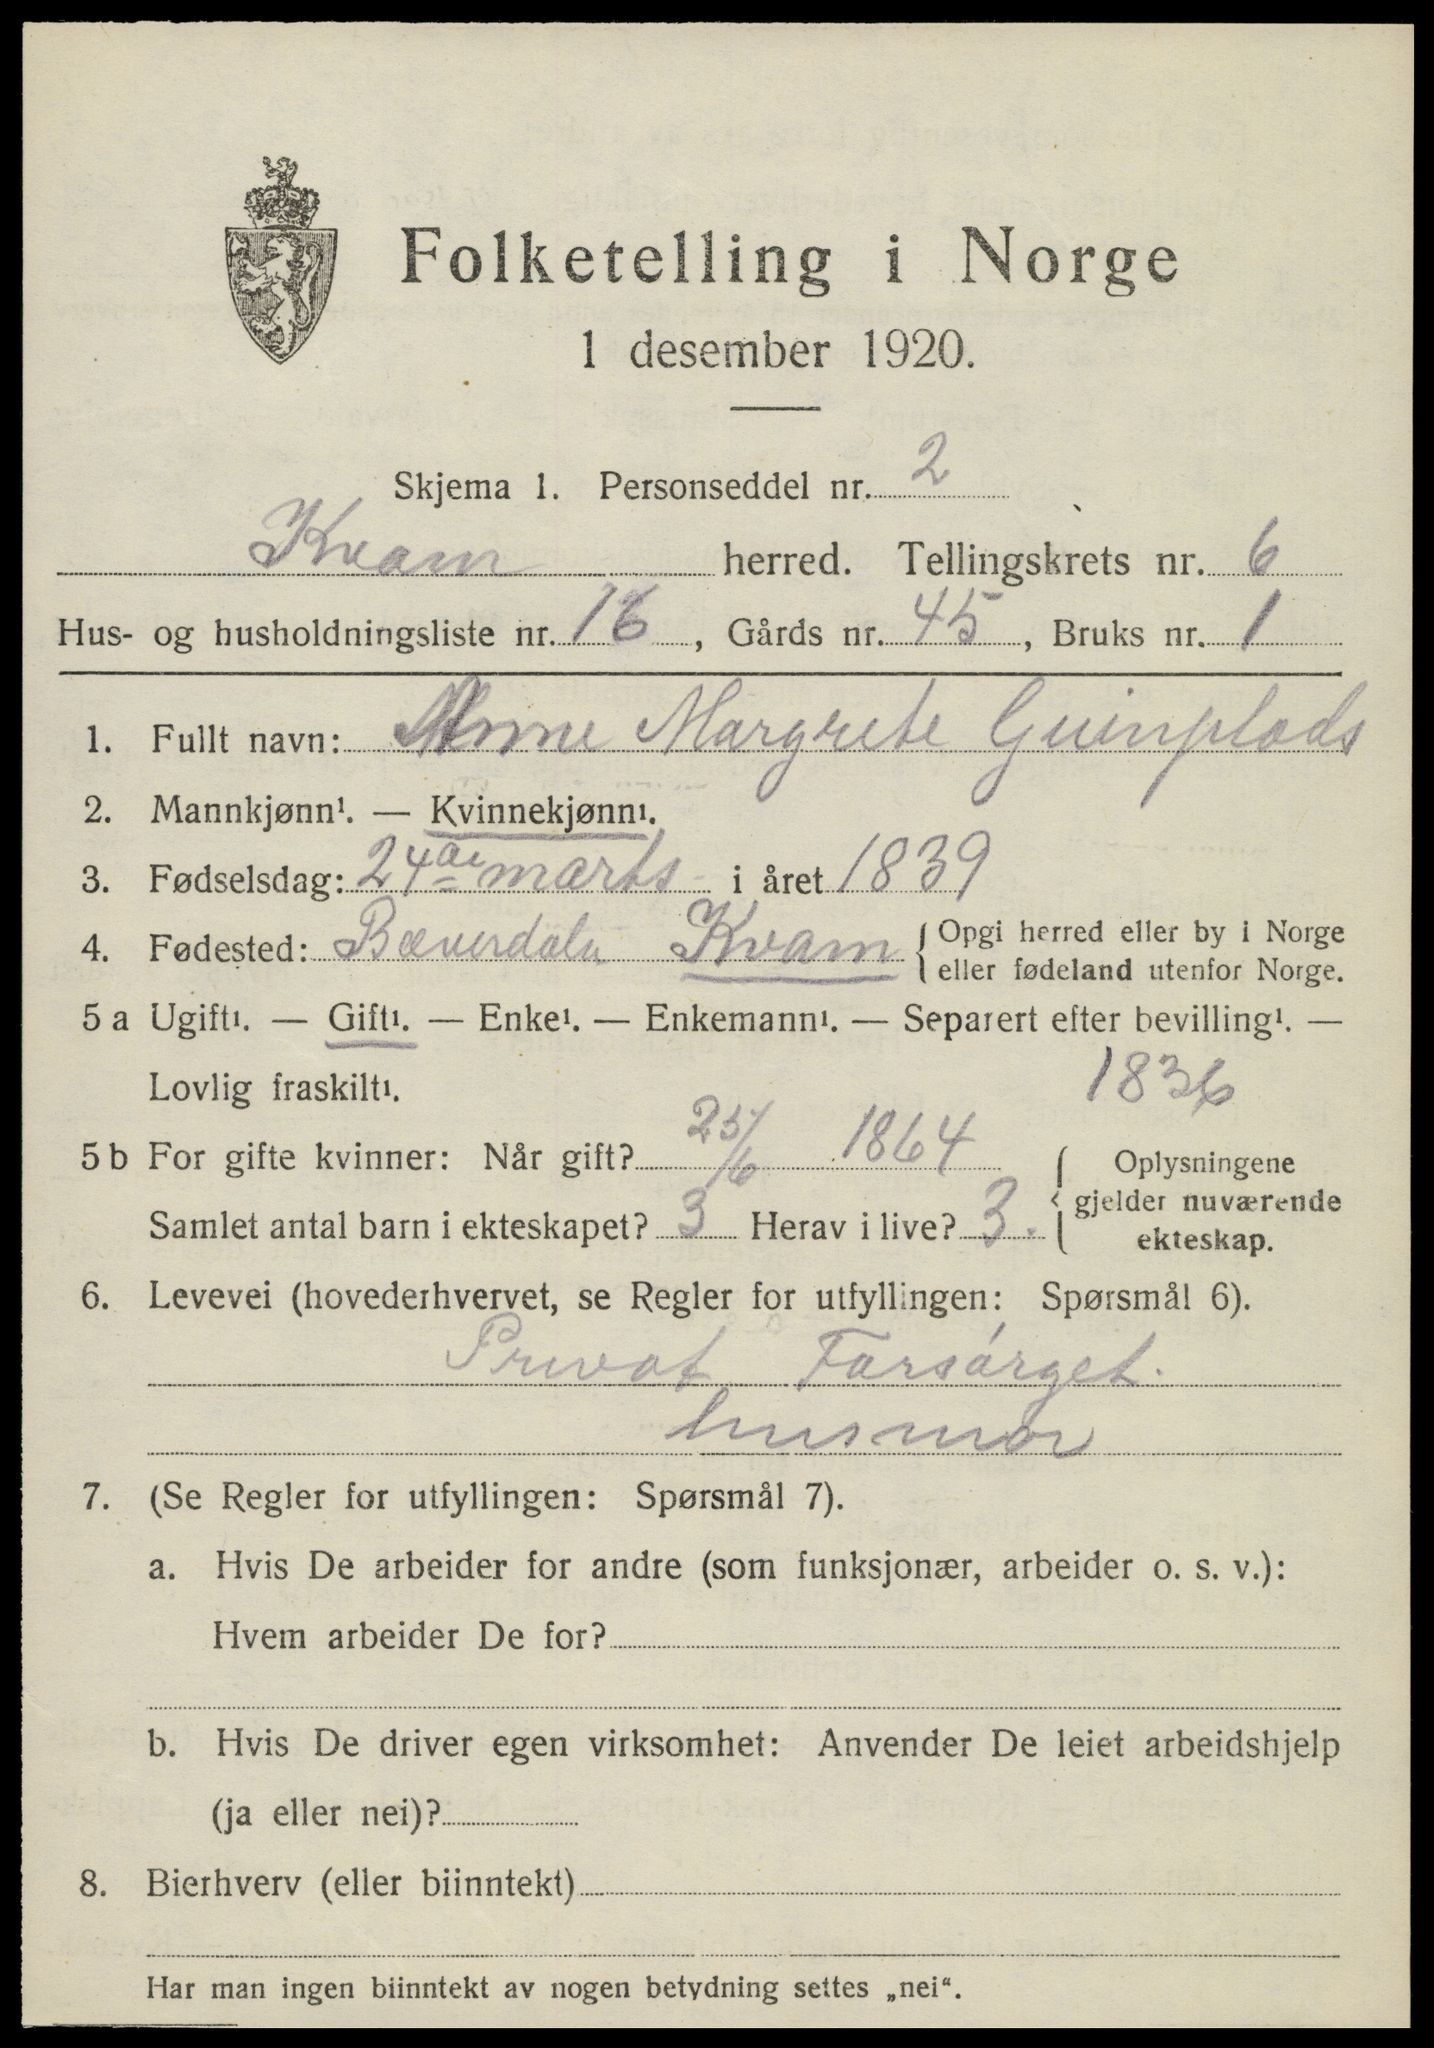 Folketelling i Norge
1 desember 1920.
Skjema 1. Personseddel nr. 2
Kvam herred. Tellingskrets nr. 6
Hus- og husholdningsliste nr. 16, Gårds nr. 45, Bruks nr. 1
1. Fullt navn: Anne Margrete Guinplads
2. Mannkjønn¹. — Kvinnekjønn¹.
3. Fødselsdag: 24de marts i året 1839
4. Fødested: Bæverdaln Kvam { Opgi herred eller by i Norge
eller fødeland utenfor Norge.
5 a Ugift¹. — Gift¹. — Enke¹. — Enkemann¹. — Separert efter bevilling¹. —
Lovlig fraskilt¹. 1836
5 b For gifte kvinner: Når gift? 25/6 1864 { Oplysningene
gjelder nuværende
Samlet antal barn i ekteskapet? 3 Herav i live? 3.
ekteskap.
6. Levevei (hovederhvervet, se Regler for utfyllingen: Spørsmål 6).
Privat Forsørget.
husmor
7. (Se Regler for utfyllingen: Spørsmål 7).
a. Hvis De arbeider for andre (som funksjonær, arbeider o. s. v.):
Hvem arbeider De for?
b. Hvis De driver egen virksomhet: Anvender De leiet arbeidshjelp
(ja eller nei)?
8. Bierhverv (eller biinntekt)
Har man ingen biinntekt av nogen betydning settes „nei“.